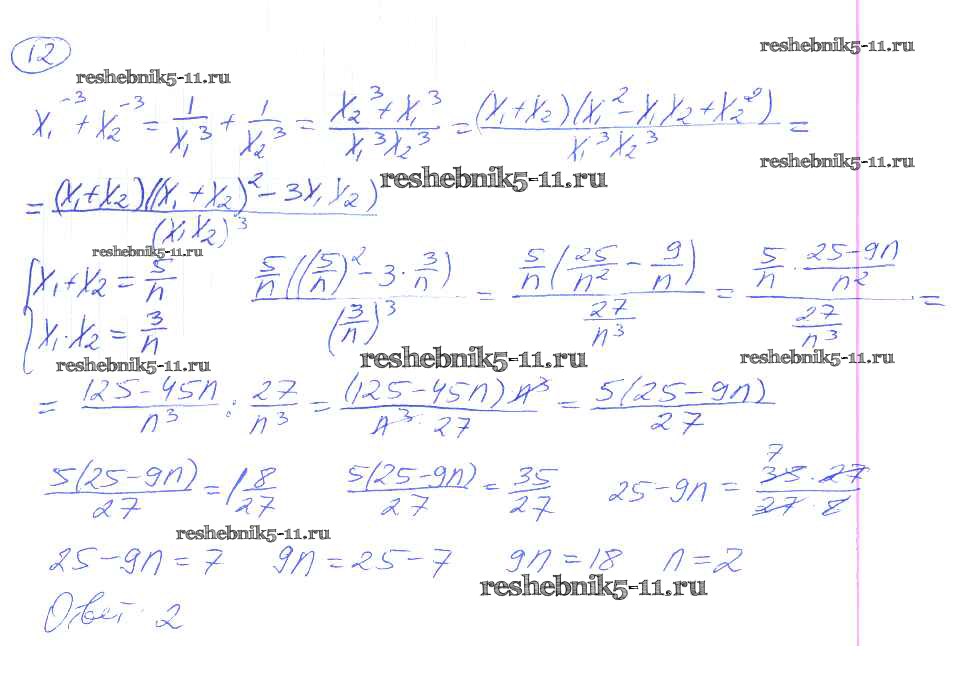 12
reshebnik5-11.ru
reshebnik5-11.ru
x₁⁻³ + x₂⁻³ = 1/x₁³ + 1/x₂³ = (x₂³ + x₁³)/(x₁³x₂³) = (x₁+x₂)(x₁² - x₁x₂ + x₂²)/(x₁³x₂³) =
reshebnik5-11.ru
reshebnik5-11.ru
= (x₁+x₂)((x₁+x₂)² - 3x₁x₂)/(x₁x₂)³
reshebnik5-11.ru
{x₁+x₂ = 5/n
x₁·x₂ = 3/n
5/n((5/n)² - 3·3/n)/(3/n)³ = 5/n(25/n² - 9/n)/(27/n³) = (5/n · (25-9n)/n²)/(27/n³) =
reshebnik5-11.ru
reshebnik5-11.ru
reshebnik5-11.ru
= (125-45n)/n³ : 27/n³ = (125-45n)n³/(n³·27) = 5(25-9n)/27
5(25-9n)/27 = 1 8/27 5(25-9n)/27 = 35/27 25-9n = 7 35·27/27·
reshebnik5-11.ru
25-9n = 7 9n = 25-7 9n = 18 n = 2
reshebnik5-11.ru
Ответ: 2